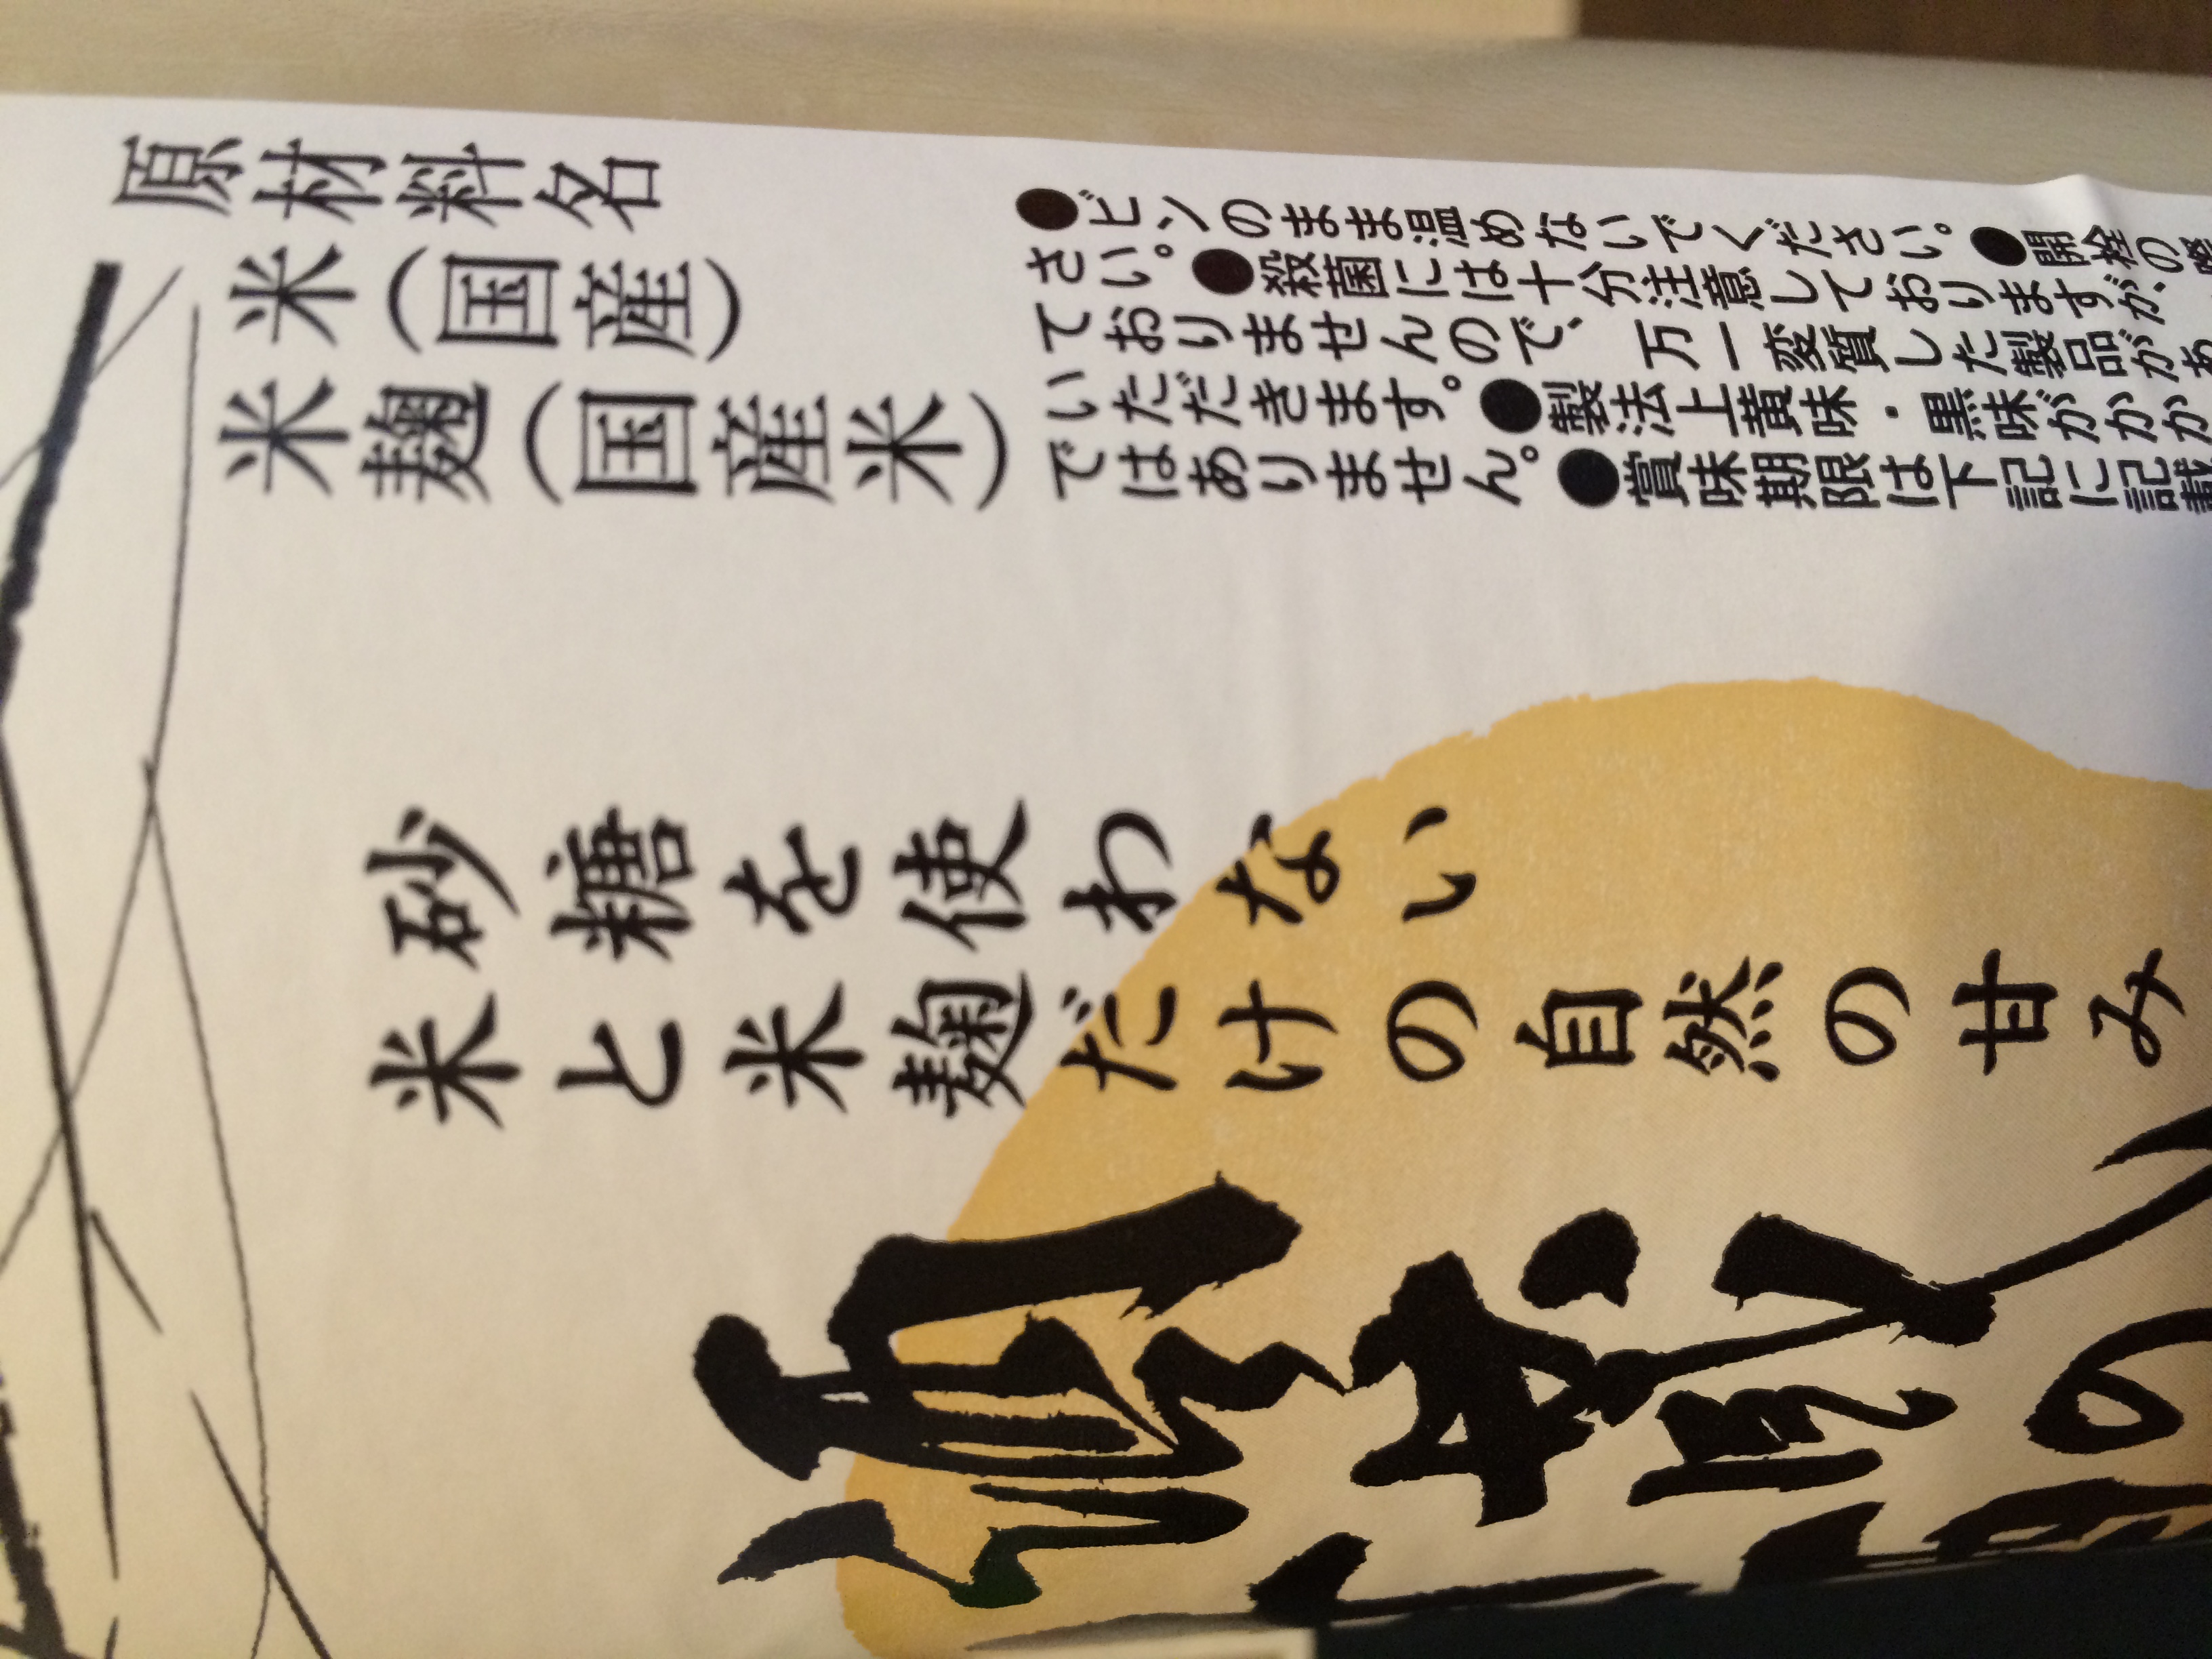 原材料名
米(国産)
米麹(国産米)
●ビンのまま温めないでください。●開栓の
さい。●殺菌には十分注意しておりますが、
ておりませんので、万一変質した製品があ
いただきます。●製法上黄味・黒味がかか
ではありません。●賞味期限は下記に記載
砂糖を使わない
米と米麹だけの自然の甘み
の